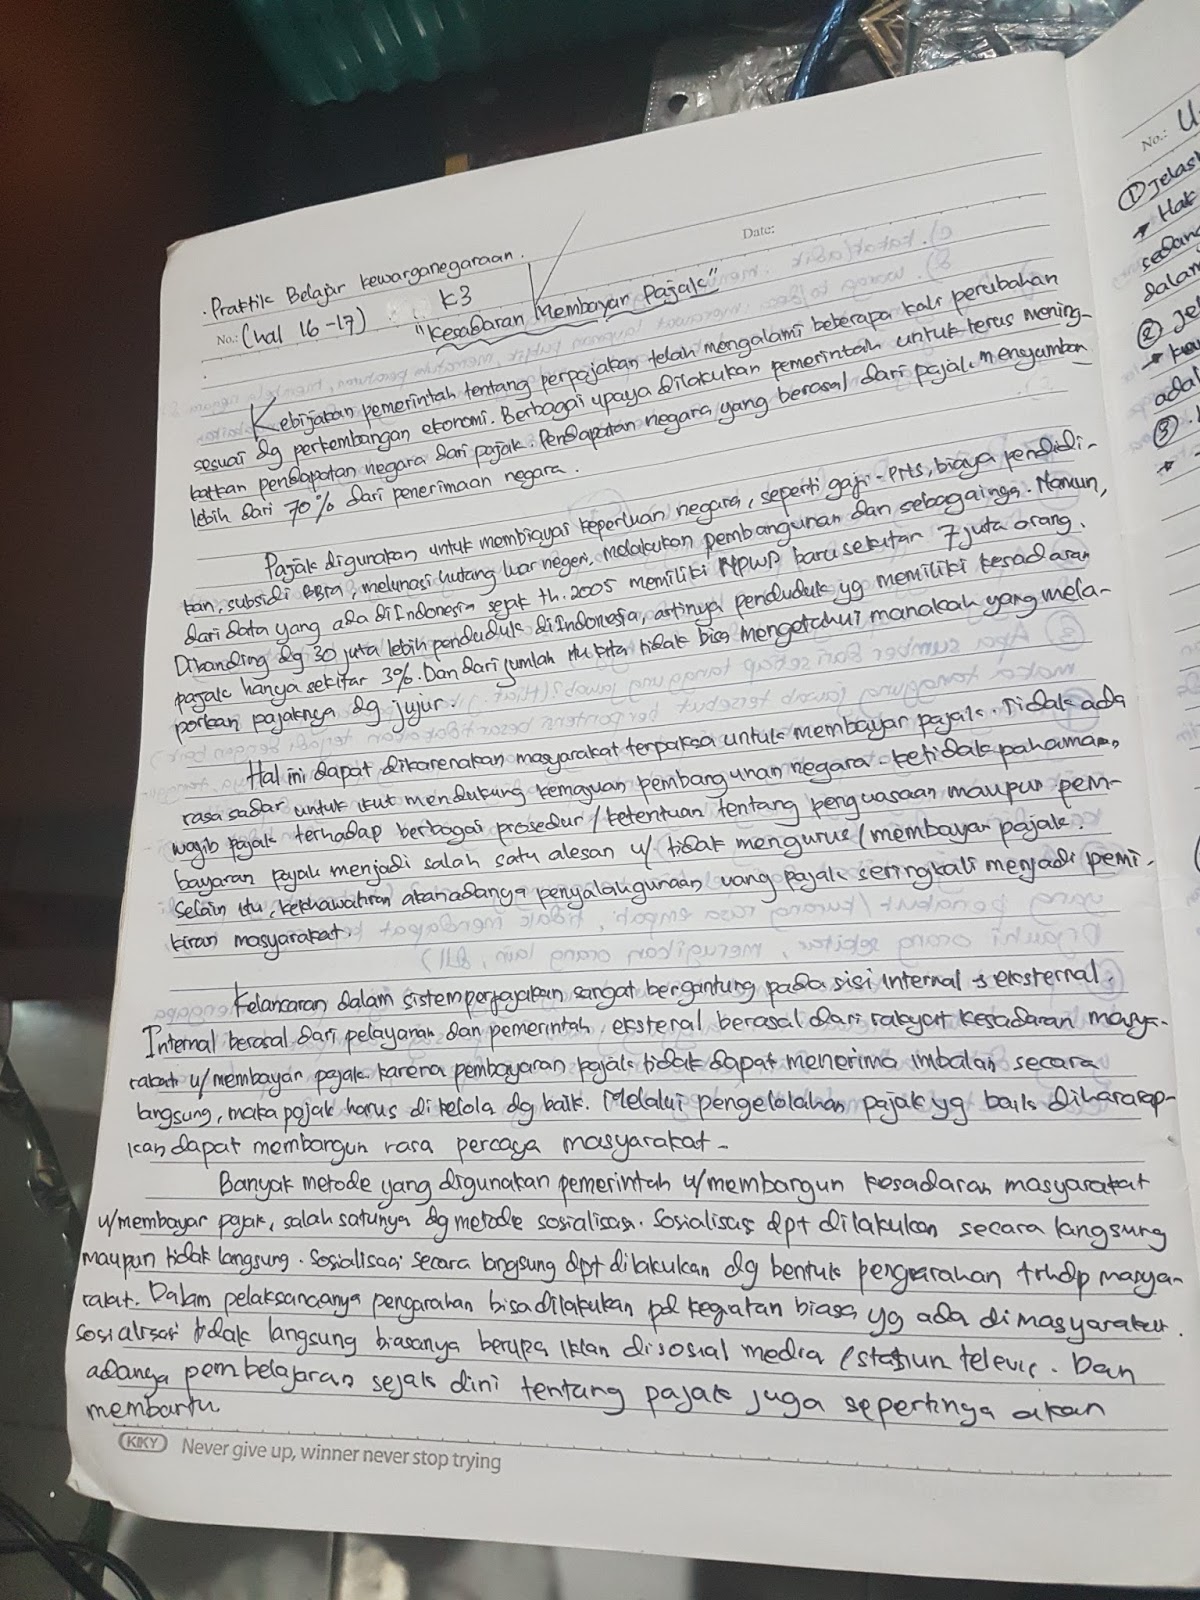 Praktik Belajar kewarganegaraan.
No.: (hal 16-17) K3 Date:
"Kesadaran Membayar Pajak"
Kebijakan pemerintah tentang perpajakan telah mengalami beberapa kali perubahan
sesuai dg perkembangan ekonomi. Berbagai upaya dilakukan pemerintah untuk terus mening-
katkan pendapatan negara dari pajak. Pendapatan negara yang berasal dari pajak menyumbon
lebih dari 70% dari penerimaan negara.
Pajak digunakan untuk membiayai keperluan negara, seperti gaji PNS, biaya pendidi-
kan, subsidi BBM, melunasi hutang luar negeri, melakukan pembangunan dan sebagainya. Namun,
dari data yang ada di Indonesia sejak th.2005 memiliki NPWP baru sekitar 7 juta orang.
Dibanding dg 30 juta lebih penduduk di Indonesia, artinya penduduk yg memiliki kesadaran
pajak hanya sekitar 3%. Dan dari jumlah itu kita tidak bisa mengetahui manakah yang mela-
porkan pajaknya dg jujur.
Hal ini dapat dikarenakan masyarakat terpaksa untuk membayar pajak. Tidak ada
rasa sadar untuk ikut mendukung kemajuan pembangunan negara. ketidak pahaman
wajib pajak terhadap berbagai prosedur/ketentuan tentang penguasaan maupun pem-
bayaran pajak menjadi salah satu alesan u/ tidak mengurus/membayar pajak.
Selain itu, kekhawatiran akan adanya penyalahgunaan uang pajak seringkali menjadi pemi-
kiran masyarakat.
Kelancaran dalam sistem perpajakan sangat bergantung pada sisi internal & eksternal.
Internal berasal dari pelayanan dan pemerintah, eksteral berasal dari rakyat kesadaran masya-
rakat u/membayar pajak. karena pembayaran pajak tidak dapat menerima imbalan secara
langsung, maka pajak harus di kelola dg baik. Melalui pengelolahan pajak yg baik diharapap-
kan dapat membangun rasa percaya masyarakat.
Banyak metode yang digunakan pemerintah u/membangun kesadaran masyarakat
u/membayar pajak, salah satunya dg metode sosialisasi. Sosialisasi dpt dilakukan secara langsung
maupun tidak langsung. Sosialisasi secara langsung dpt dilakukan dg bentuk pengarahan trhdp masya-
rakat. Dalam pelaksanaanya pengarahan bisa dilakukan pd kegiatan biasa yg ada di masyarakat.
sosialisasi tidak langsung biasanya berupa iklan di sosial media/stasiun televisi. Dan
adanya pembelajaran sejak dini tentang pajak juga sepertinya akan
membantu.
KIKY Never give up, winner never stop trying
No.:
① Jelas
→ Hak
sedang
dalam
②
ada
③